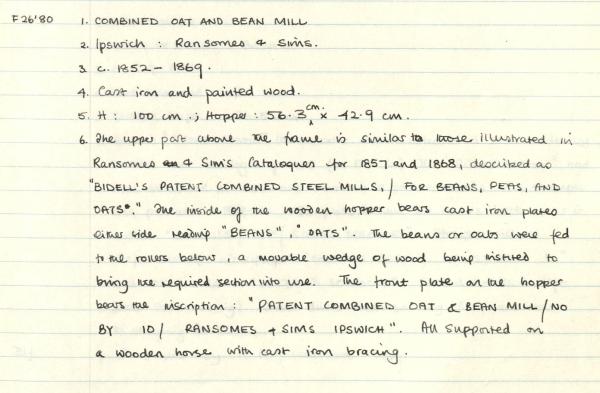 F26'80 1. COMBINED OAT AND BEAN MILL
2. Ipswich : Ransomes & Sims.
3. c. 1852 - 1869.
4. Cast iron and painted wood.
5. H : 100 cm ; Hopper : 56.3 cm. x 42.9 cm.
6. The upper part above the frame is similar to those illustrated in
Ransomes & Sims Catalogues for 1857 and 1868, described as
"BIDELL'S PATENT COMBINED STEEL MILLS, / FOR BEANS, PEAS, AND
OATS." The inside of the wooden hopper bears cast iron plates
either side reading "BEANS", "OATS". The beans or oats were fed
to the rollers below, a movable wedge of wood being inserted to
bring the required section into use. The front plate on the hopper
bears the inscription : "PATENT COMBINED OAT & BEAN MILL / NO
BY 10 / RANSOMES & SIMS IPSWICH". All supported on
a wooden horse with cast iron bracing.